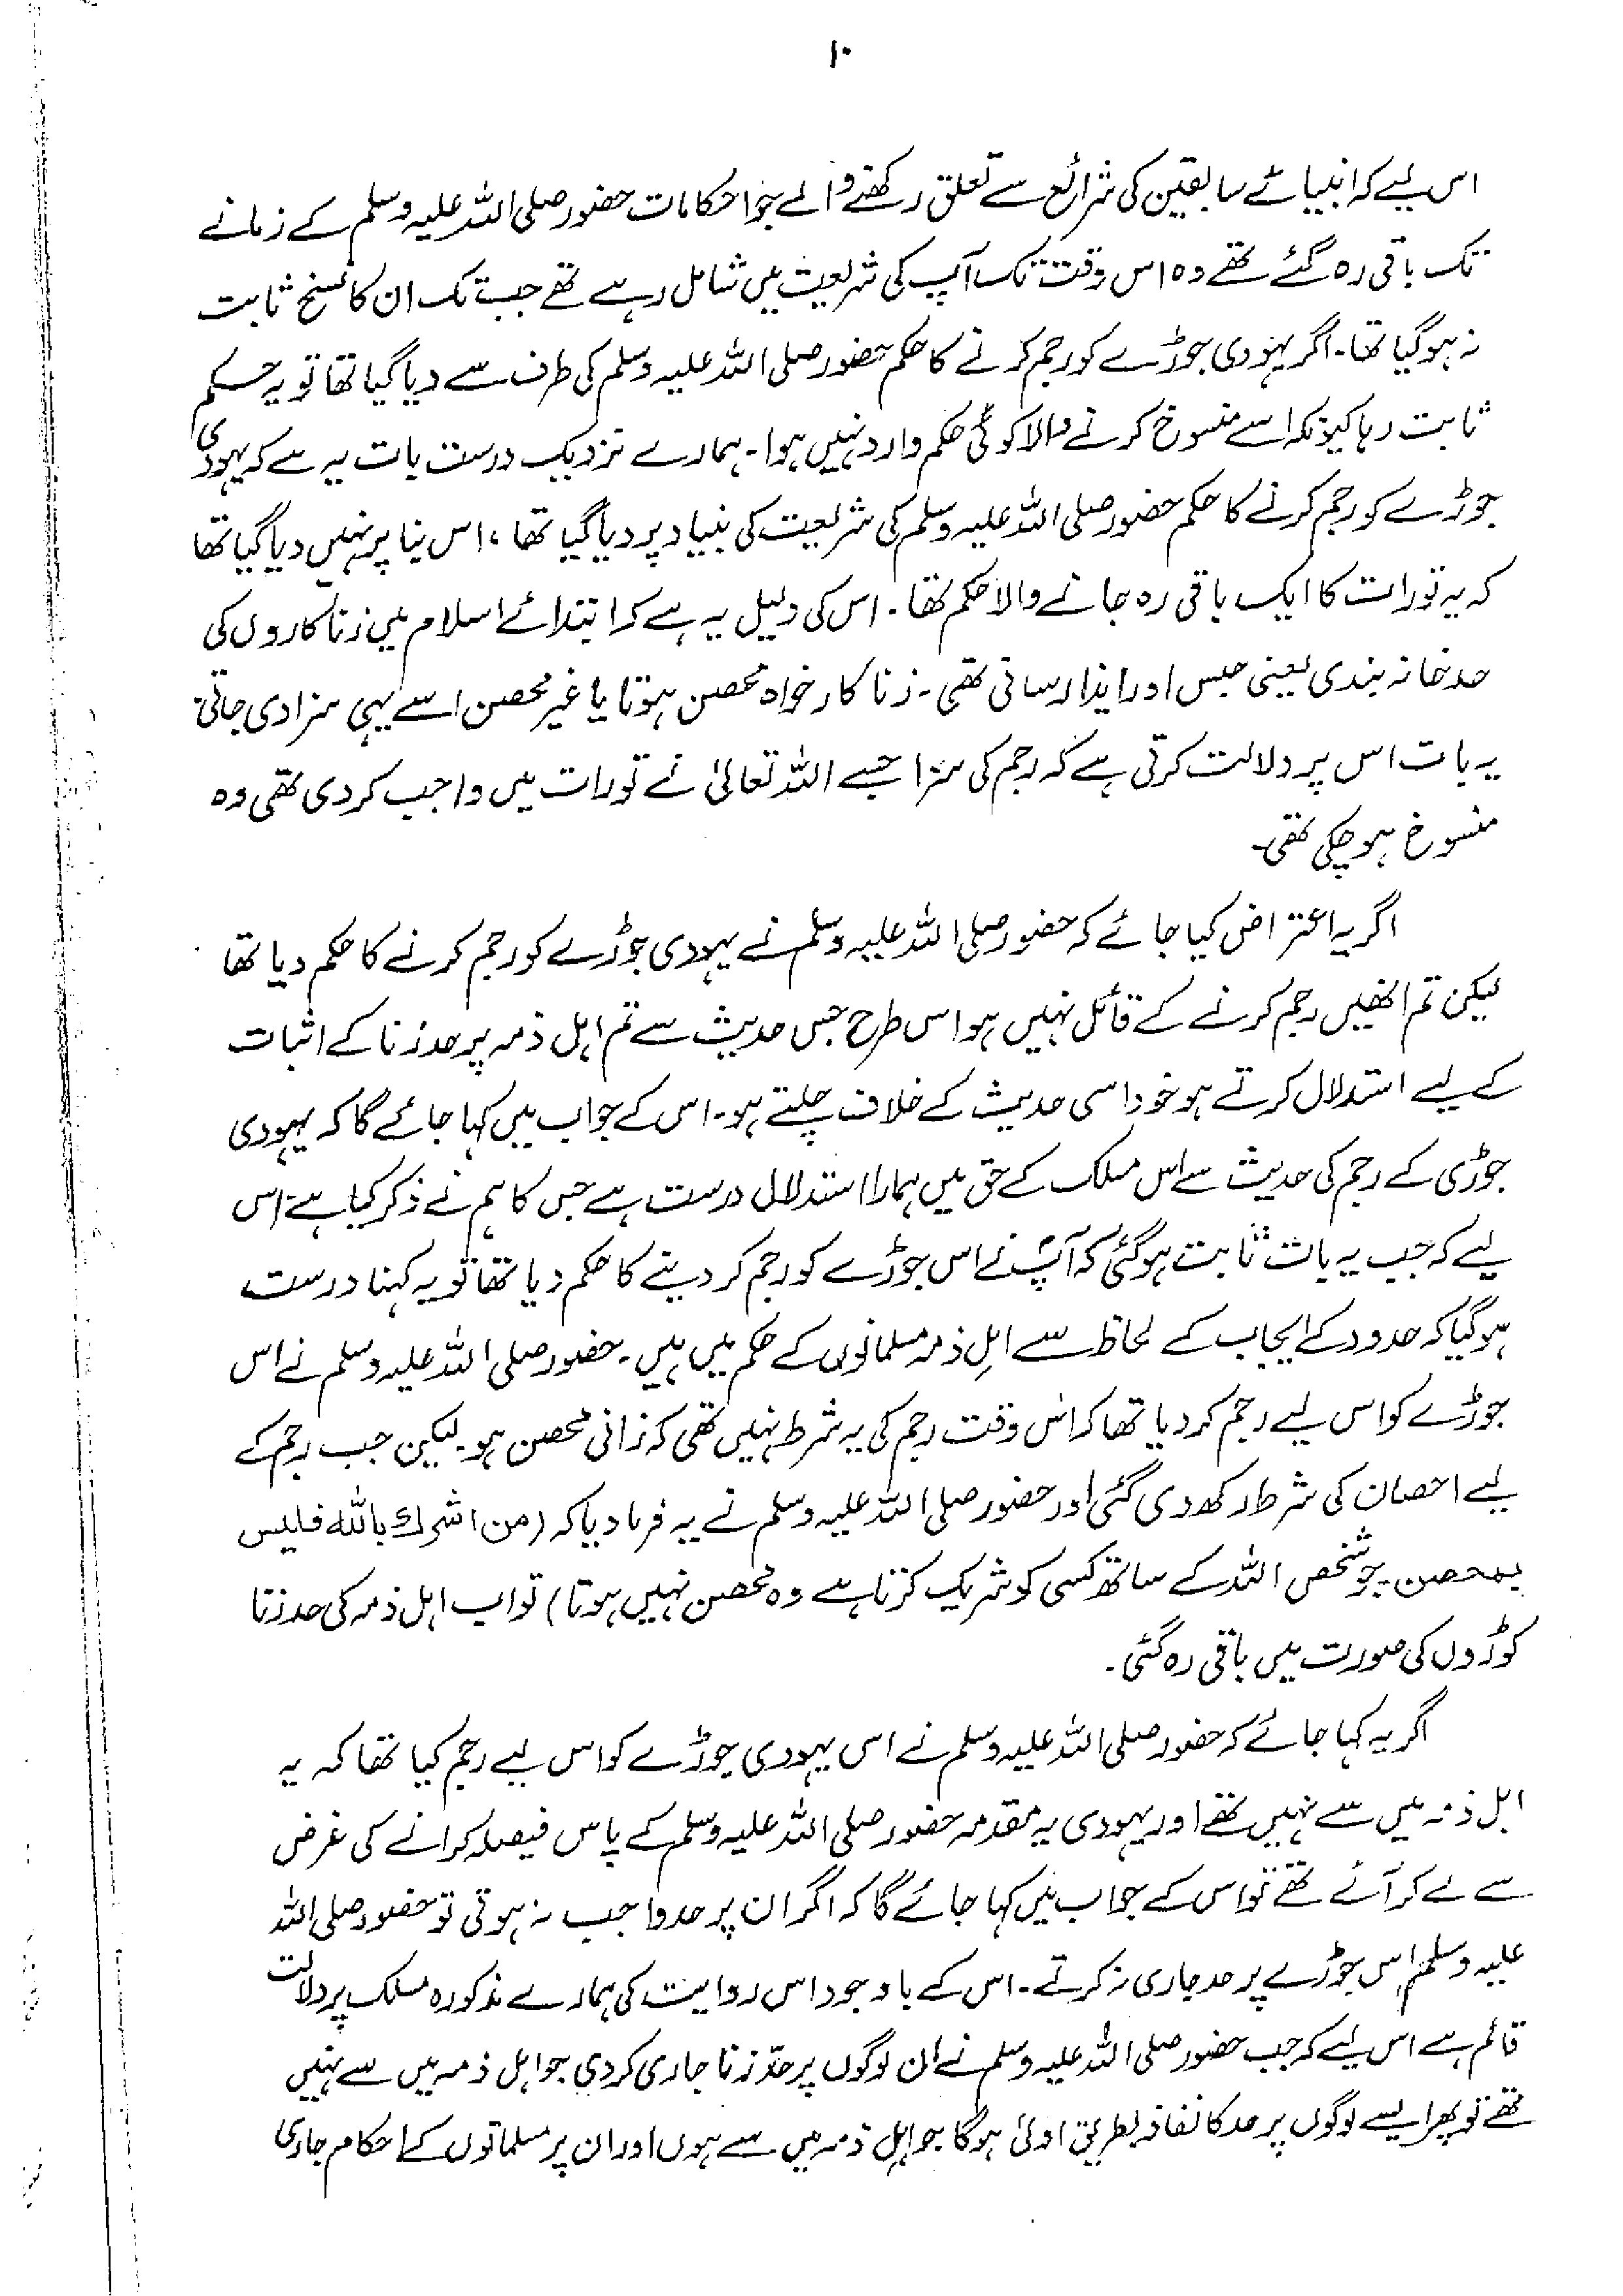 ۱۰
اس لیے کہ انبیائے سابقین کی شرائع سے تعلق رکھنے والے جو احکامات حضور صلی اللہ علیہ وسلم کے زمانے
تک باقی رہ گئے تھے وہ اس وقت تک آپ کی شریعت میں شامل رہے تھے جب تک ان کا نسخ ثابت
نہ ہوگیا تھا۔ اگر یہودی جوڑے کو رجم کرنے کا حکم حضور صلی اللہ علیہ وسلم کی طرف سے دیا گیا تھا تو یہ حکم
ثابت رہا کیونکہ اسے منسوخ کرنے والا کوئی حکم وارد نہیں ہوا۔ ہمارے نزدیک درست بات یہ ہے کہ یہودی
جوڑے کو رجم کرنے کا حکم حضور صلی اللہ علیہ وسلم کی شریعت کی بنیاد پر دیا گیا تھا، اس بنا پر نہیں دیا گیا تھا
کہ یہ تورات کا ایک باقی رہ جانے والا حکم تھا۔ اس کی دلیل یہ ہے کہ ابتدائے اسلام میں زنا کاروں کی
حد خانہ بندی یعنی حبس اور ایذا رسانی تھی۔ زنا کار خواہ محصن ہوتا یا غیر محصن اسے یہی سزا دی جاتی۔
یہ بات اس پر دلالت کرتی ہے کہ رجم کی سزا جسے اللہ تعالیٰ نے تورات میں واجب کر دی تھی وہ
منسوخ ہو چکی تھی۔
اگر یہ اعتراض کیا جائے کہ حضور صلی اللہ علیہ وسلم نے یہودی جوڑے کو رجم کرنے کا حکم دیا تھا
لیکن تم انھیں رجم کرنے کے قائل نہیں ہو اس طرح جس حدیث سے تم اہل ذمہ پر حد زنا کے اثبات
کے لیے استدلال کرتے ہو خود اسی حدیث کے خلاف چلتے ہو۔ اس کے جواب میں کہا جائے گا کہ یہودی
جوڑی کے رجم کی حدیث سے اس مسلک کے حق میں ہمارا استدلال درست ہے جس کا ہم نے ذکر کیا ہے، اس
لیے کہ جب یہ بات ثابت ہوگئی کہ آپؐ نے اس جوڑے کو رجم کر دینے کا حکم دیا تھا تو یہ کہنا درست
ہوگیا کہ حدود کے ایجاب کے لحاظ سے اہلِ ذمہ مسلمانوں کے حکم میں ہیں۔ حضور صلی اللہ علیہ وسلم نے اس
جوڑے کو اس لیے رجم کر دیا تھا کہ اس وقت رجم کی یہ شرط نہیں تھی کہ زانی محصن ہو۔ لیکن جب رجم کے
لیے احصان کی شرط رکھ دی گئی اور حضور صلی اللہ علیہ وسلم نے یہ فرما دیا کہ (من اشرك بالله فليس
بمحصن۔ جو شخص اللہ کے ساتھ کسی کو شریک کرتا ہے وہ محصن نہیں ہوتا) تو اب اہل ذمہ کی حد زنا
کوڑوں کی صورت میں باقی رہ گئی۔
اگر یہ کہا جائے کہ حضور صلی اللہ علیہ وسلم نے اس یہودی جوڑے کو اس لیے رجم کیا تھا کہ یہ
اہل ذمہ میں سے نہیں تھے اور یہودی یہ مقدمہ حضور صلی اللہ علیہ وسلم کے پاس فیصلہ کرانے کی غرض
سے لے کر آئے تھے تو اس کے جواب میں کہا جائے گا کہ اگر ان پر حد واجب نہ ہوتی تو حضور صلی اللہ
علیہ وسلم اس جوڑے پر حد جاری نہ کرتے۔ اس کے باوجود اس روایت کی ہمارے مذکورہ مسلک پر دلالت
قائم ہے اس لیے کہ جب حضور صلی اللہ علیہ وسلم نے ان لوگوں پر حدّ زنا جاری کر دی جو اہل ذمہ میں سے نہیں
تھے تو پھر ایسے لوگوں پر حد کا نفاذ بطریق اولیٰ ہوگا جو اہل ذمہ میں سے ہوں اور ان پر مسلمانوں کے احکام جاری